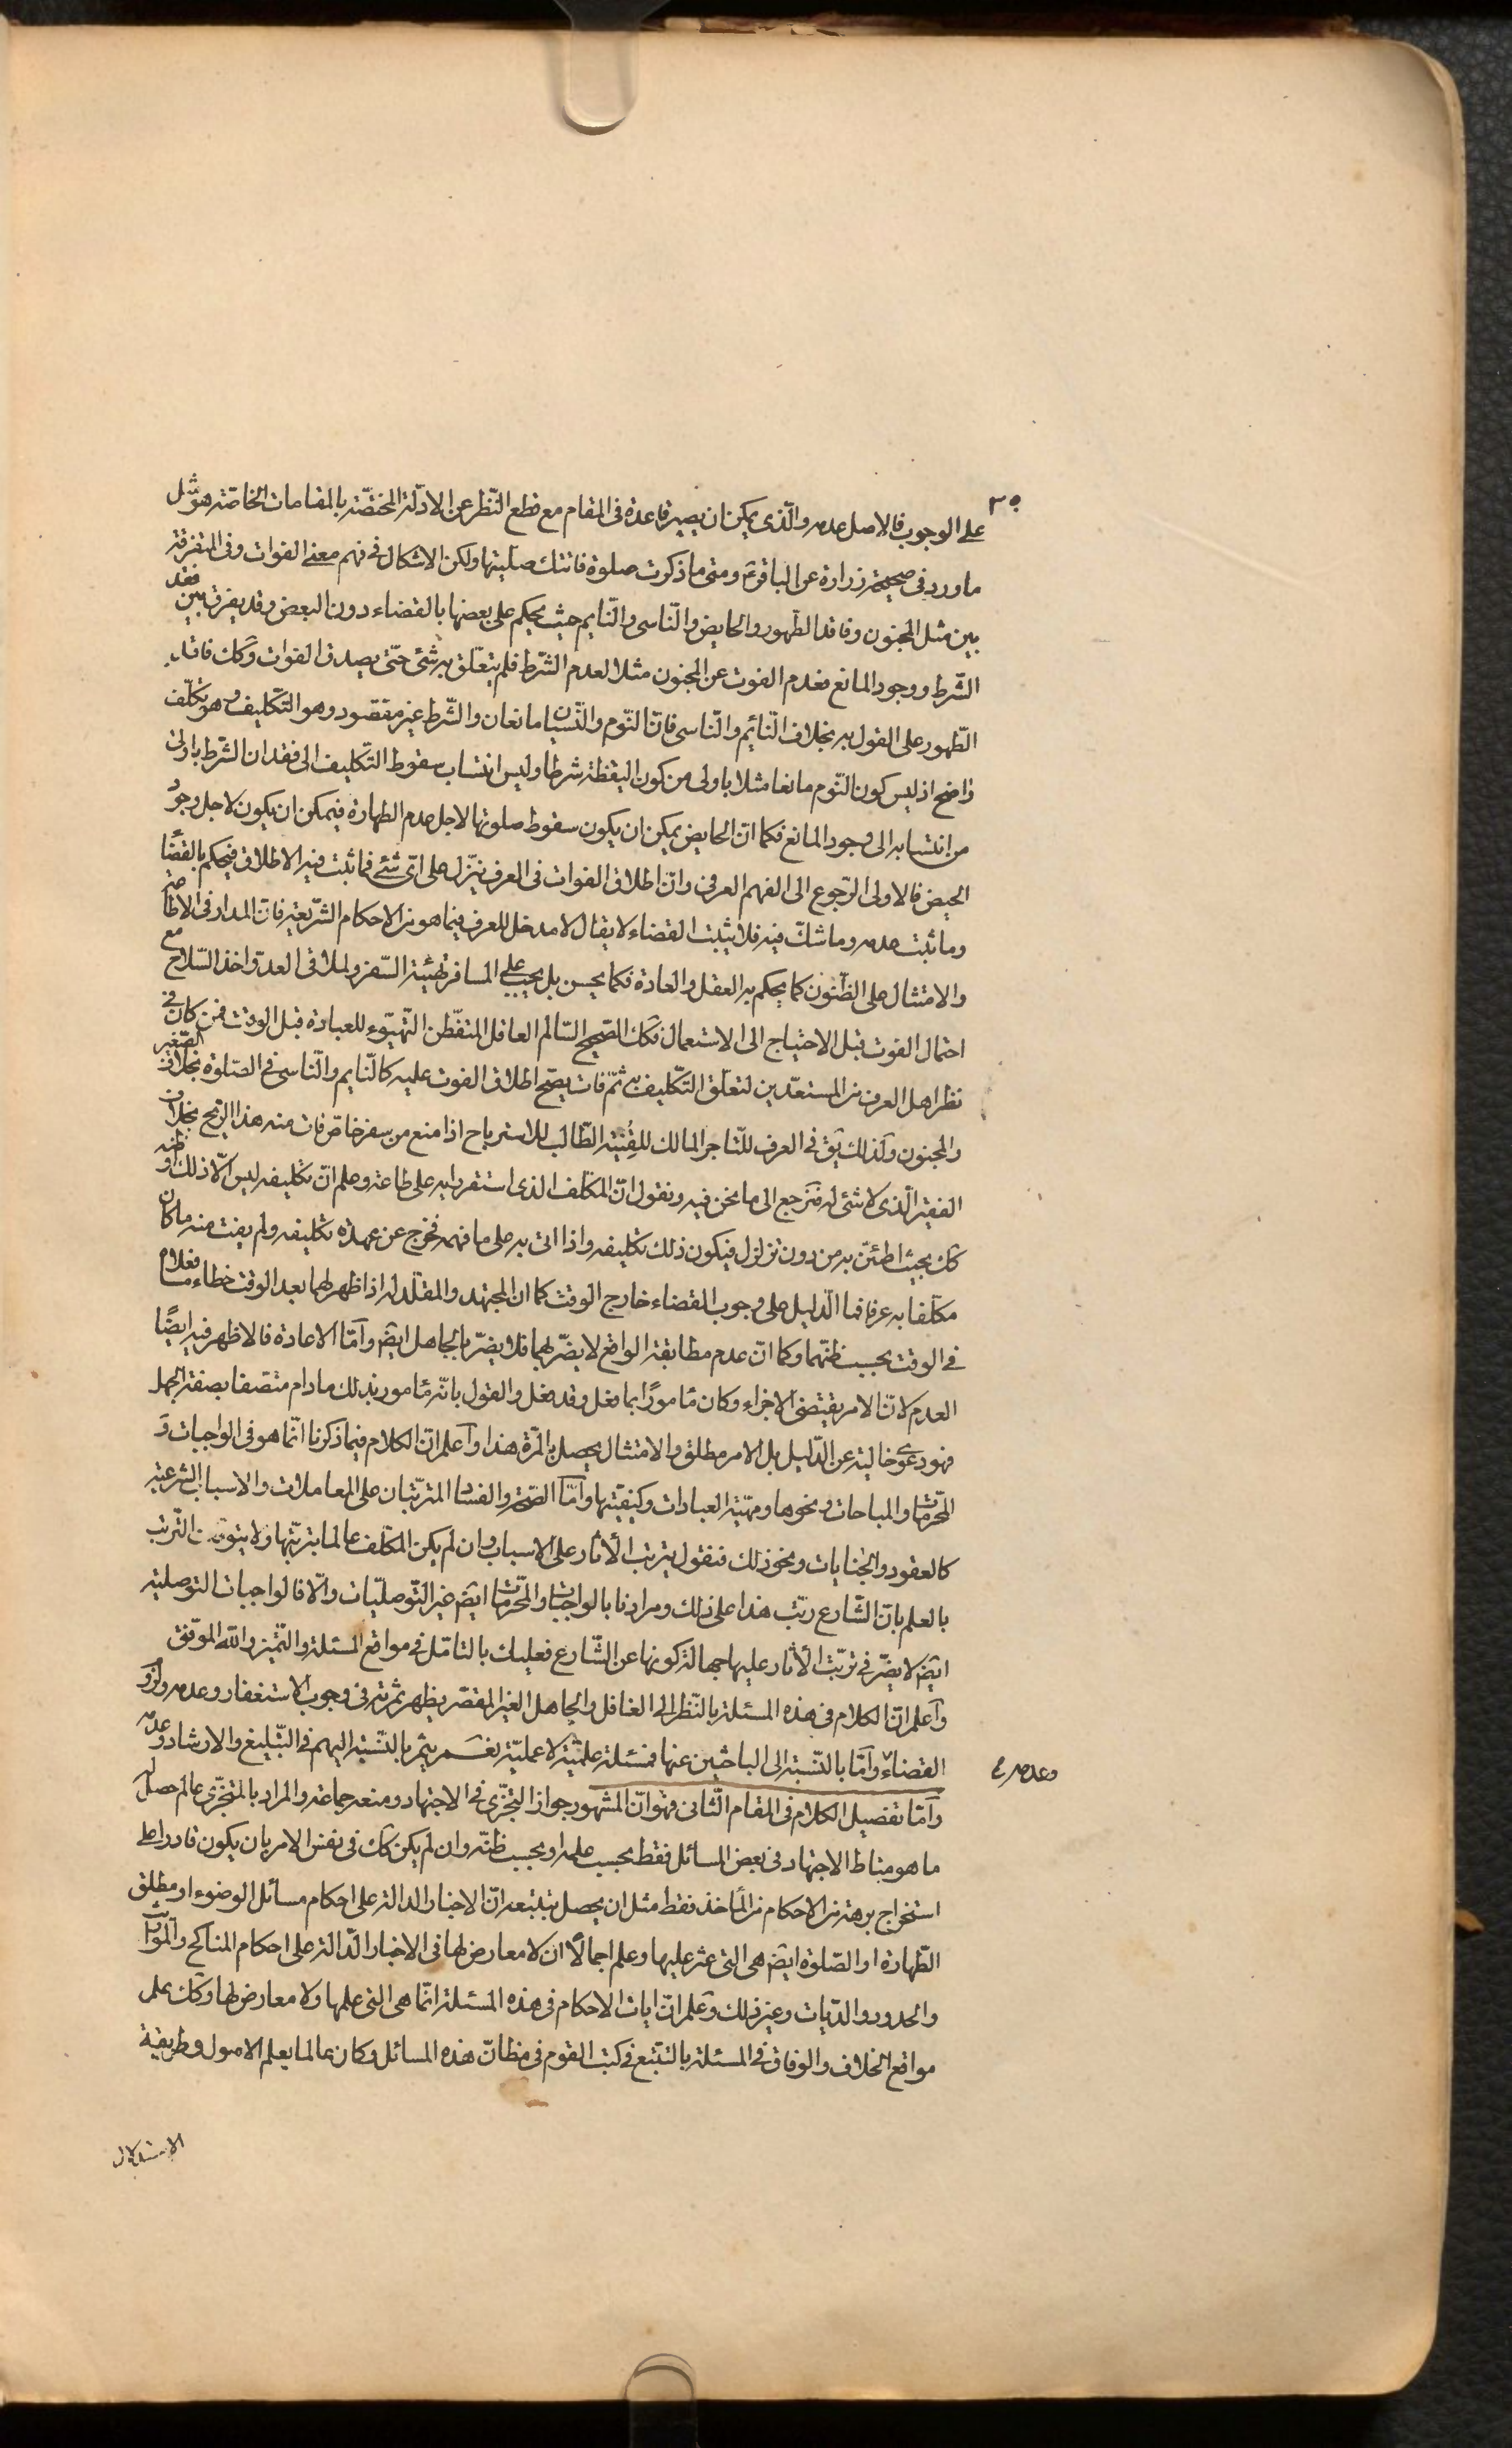 ٣٥
على الوجوب فالاصل عدمه والّذى يمكن ان يصير قاعدة فى المقام مع قطع النّظر عن الادلّة المختصّة بالمقامات الخاصّة هو مثل
ما ورد فى صحيحة زرارة عن الباقر ع ومتى ما ذكرت صلوة فاتتك صلّيتها ولكن الاشكال فى فهم معنى الفوات وفى التفرقة
بين مثل المجنون وفاقد الطّهور والحايض والنّاسى والنّايم حيث يحكم على بعضها بالقضاء دون البعض وقد يفرق بين فقد
الشّرط ووجود المانع فعدم الفوت عن المجنون مثلا لعدم الشّرط فلم يتعلّق به شئ حتّى يصدق الفوات وكك فاقد
الطّهور على القول به بخلاف النّائم والنّاسى فانّ النّوم والنّسيان مانعان والشّرط غير مفقود وهو التّكليف وهو تكلّف
واضح اذ ليس كون النّوم مانعا مثلا باولى من كون اليقظة شرطا وليس انتساب سقوط التّكليف الى فقدان الشّرط باولى
من انتسابه الى وجود المانع فكما انّ الحايض يمكن ان يكون سقوط صلوتها لاجل عدم الطهارة فيمكن ان يكون لاجل وجود
الحيض فالاولى الرّجوع الى الفهم العرفى وانّ اطلاق الفوات فى العرف ينزّل على اىّ شئ فما ثبت فيه الاطلاق فيحكم بالقضاء
وما ثبت عدمه وما شكّ فيه فلا يثبت القضاء لا يقال لا مدخل للعرف فيما هو من الاحكام الشّرعية فانّ المدار فى الاطاعة
والامتثال على الظّنون كما يحكم به العقل والعادة فكما يحسن بل يجب على المسافر تهيئة السّفر ولملاقى العدوّ اخذ السّلاح مع
احتمال الفوت قبل الاحتياج الى الاستعمال فكك الصّحيح السّالم العاقل المتفّطن التّهيّوء للعبادة قبل الوقت فمن كان فى
نظر اهل العرف من المستعدّين لتعلّق التّكليف به ثمّ فات يصحّ اطلاق الفوت عليه كالنّايم والنّاسى فى الصّلوة بخلاف الصّغير
والمجنون ولذلك يقى فى العرف للتّاجر المالك للقنية الطّالب للاسترباح اذا منع من سفر خاصّ فات منه هذا الرّبح بخلاف
الفقير الّذى لا شئ له فنرجع الى ما نحن فيه ونقول انّ المكلّف الذى استقر رايه على طاعة وعلم انّ تكليفه ليس الّا ذلك او ظنّه
كك بحيث اطمئنّ به من دون تزلزل فيكون ذلك تكليفه واذا اتى به على ما فهمه فخرج عن عهدة تكليفه ولم يفت منه ما كان
مكلّفا به عرفا فما الدّليل على وجوب القضاء خارج الوقت كما انّ المجتهد والمقلّد له اذا ظهر لهما بعد الوقت خطاء ما فعلاه
فى الوقت بحسب ظنّهما وكما انّ عدم مطابقة الواقع لا يضرّ بهما فلا يضرّ بالجاهل ايضا وامّا الاعادة فالاظهر فيه ايضًا
العدم لانّ الامر يقتضى الاجزاء وكان مأمورًا بما فعل وقد فعل والقول بانّه مأمور بذلك مادام متصفا بصفة الجهل
فهو دعوى خالية عن الدّليل بل الامر مطلق والامتثال يحصل بالمرّة هذا واعلم انّ الكلام فيما ذكرنا انّما هو فى الواجبات و
المحرّمات والمباحات ونحوها ومهيّة العبادات وكيفيّتها وامّا الصّحّة والفساد المترتّبان على المعاملات والاسباب الشرعية
كالعقود والجنايات ونحو ذلك فنقول يترتب الأثار على الاسباب وان لم يكن المكلّف عالما بترتّبها ولا يتوقّف الترتب
بالعلم بانّ الشّارع رتّب هذا على ذلك ومرادنا بالواجبات والمحرّمات ايضا غير التّوصليّات والّا فالواجبات التوصلية
ايضا لا يضرّ فى ترتّب الأثار عليها جهالة كونها عن الشّارع فعليك بالتامّل فى مواقع المسئلة والتّميز واللّه الموفّق
واعلم انّ الكلام فى هذه المسئلة بالنّظر الى الغافل والجاهل الغير المقصّر يظهر ثمرته فى وجوب الاستغفار وعدمه ولزوم
القضاء وامّا بالنّسبة الى الباحثين عنها فمسئلة علميّة لا عمليّة نعم يثمر بالنّسبة اليهم فى التّبليغ والارشاد وعدمه
وعدمه ع
وامّا تفصيل الكلام فى المقام الثّانى فهو انّ المشهور جواز التجزّى فى الاجتهاد ومنعه جماعة والمراد بالمتجزّى عالم حصل له
ما هو مناط الاجتهاد فى بعض المسائل فقط بحسب علمه او بحسب ظنّه وان لم يكن كك فى نفس الامر بان يكون قادرا على
استخراج برهة من الاحكام من المأخذ فقط مثل ان يحصل بتتبعه انّ الاخبار الدالة على احكام مسائل الوضوء او مطلق
الطّهارة او الصّلوة ايضا هى التى عثر عليها وعلم اجمالًا ان لا معارض لها فى الاخبار الدّالة على احكام المناكح والمواريث
والحدود والدّيات وغير ذلك وعلم انّ ايات الاحكام فى هذه المسئلة انّما هى التى علمها ولا معارض لها وكك علم
مواقع الخلاف والوفاق فى المسئلة بالتتبّع فى كتب القوم فى مظانّ هذه المسائل وكان عالما بعلم الاصول وطريقة
الاستدلال